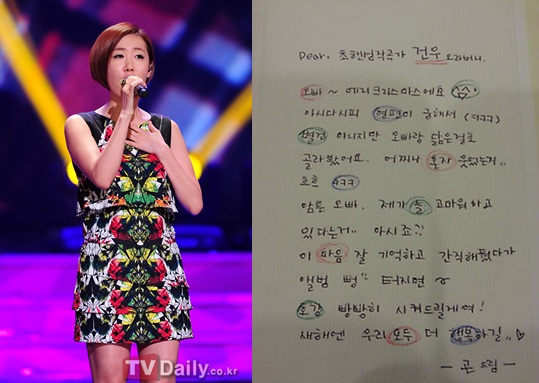 Dear. 건우 오라버니.
오빠 ~ 메리크리스마스에요 ^^
아시다시피 형편이 궁해서 (ㅋㅋㅋ)
별건 아니지만 오빠랑 닮은걸로
골라봤어요. 어찌나 혼자 웃었는지,,
흐흐 ㅋㅋㅋ
암튼 오빠. 제가 늘 고마워하고
있다는거,, 아시죠??
이 마음 잘 기억하고 간직해뒀다가
앨범 뻥~ 터지면 ~
호강 빵빵히 시켜드릴게여!
새해엔 우리 모두 더 행복하길,, ♡
- 곤 드림 -
TVDaily.co.kr